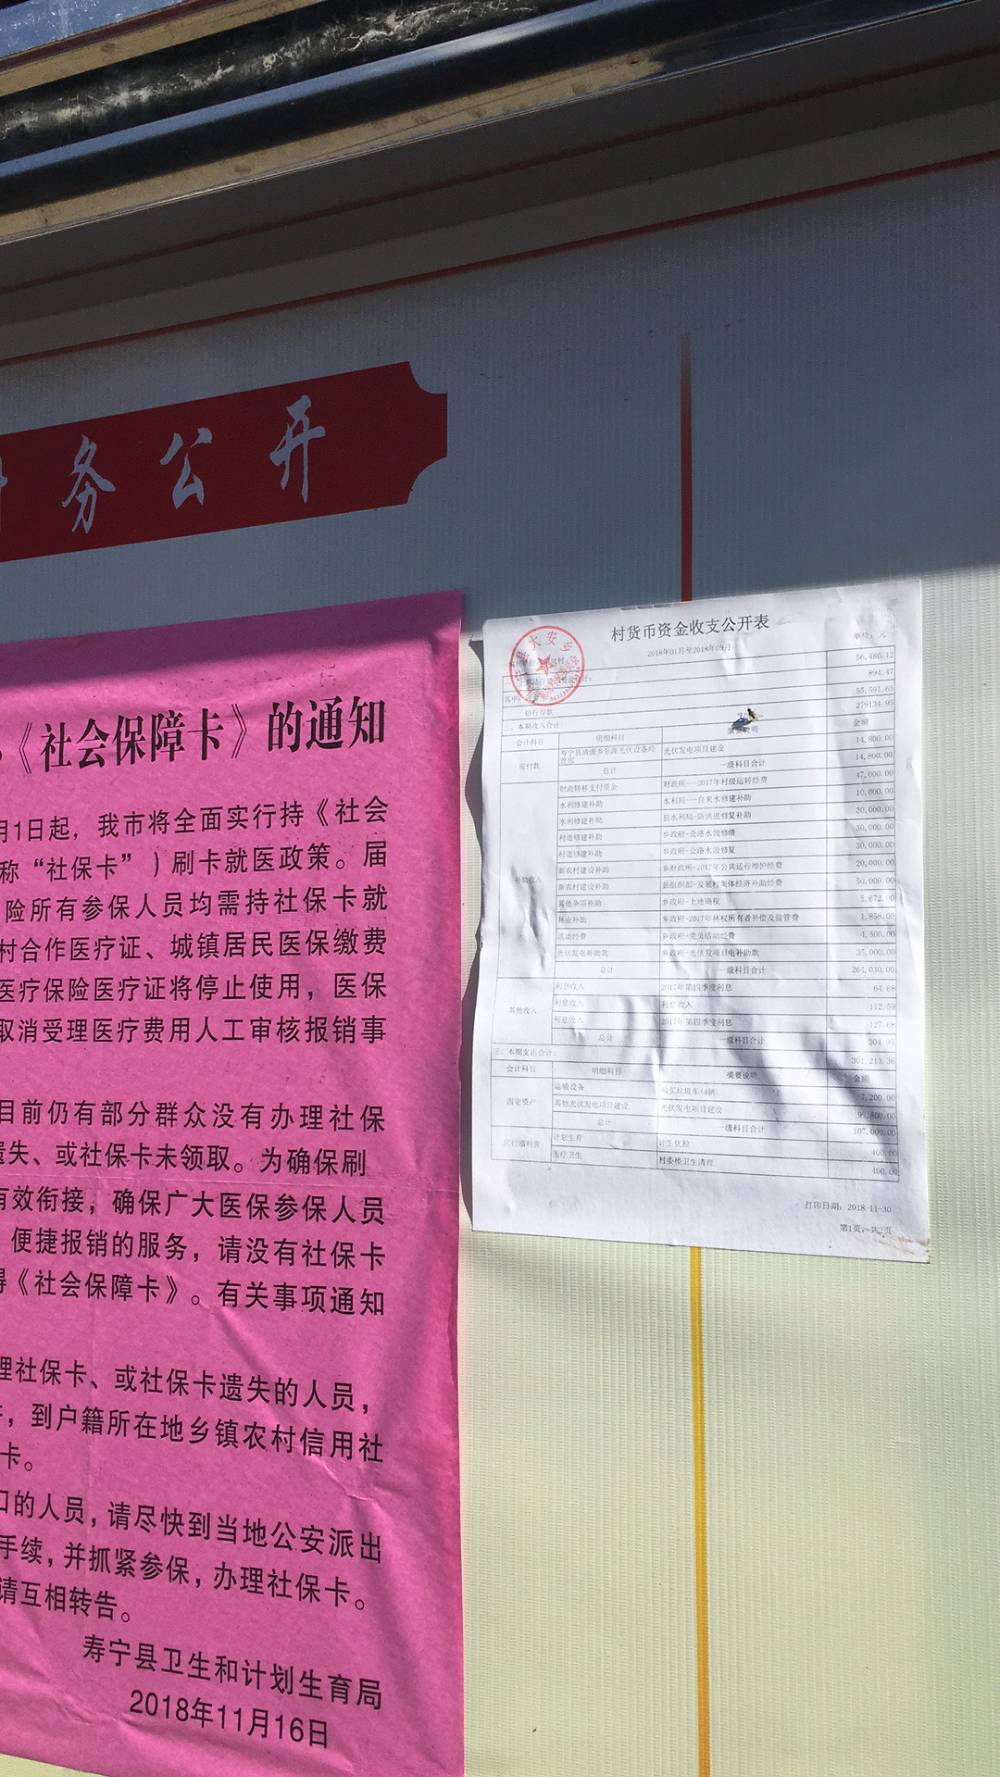 务公开
《社会保障卡》的通知
月1日起，我市将全面实行持《社会
称“社保卡”）刷卡就医政策。届
险所有参保人员均需持社保卡就
村合作医疗证、城镇居民医保缴费
医疗保险医疗证将停止使用，医保
取消受理医疗费用人工审核报销事
目前仍有部分群众没有办理社保
遗失、或社保卡未领取。为确保刷
有效衔接，确保广大医保参保人员
便捷报销的服务，请没有社保卡
得《社会保障卡》。有关事项通知
理社保卡、或社保卡遗失的人员，
，到户籍所在地乡镇农村信用社
卡。
口的人员，请尽快到当地公安派出
手续，并抓紧参保，办理社保卡。
请互相转告。
寿宁县卫生和计划生育局
2018年11月16日
村货币资金收支公开表
2018年01月至2018年09月
单位：元
56,486.12
894.47
55,591.65
银行存款
二、本期收入合计： 279134.95
会计科目 明细科目 摘要说明 金额
应付款 光伏发电项目建设 14,800.00
总计 一级科目合计 14,800.00
财政转移支付资金 财政所---2017年村级运转经费 47,000.00
水利修建补助 水利局---自来水修建补助 10,000.00
水利修建补助 县水利局-防洪堤修复补助 30,000.00
村道修建补助 乡政府-公路水毁修缮 30,000.00
村道修建补助 乡政府-公路水毁修复 30,000.00
新农村建设补助 乡财政所-2017年公共运行维护经费 20,000.00
新农村建设补助 县组织部-发展村集体经济补助经费 50,000.00
其他杂项补助 5,672.00
林业补助 乡政府-2017年林权所有者补偿及监管费 1,858.00
活动经费 乡政府-党员活动经费 4,500.00
光伏发电补助款 乡政府-光伏发项目电补助款 35,000.00
补助收入 总计 一级科目合计 264,030.00
利息收入 2017年第四季度利息 64.68
其他收入 利息收入 利息收入 112.59
利息收入 2017年第四季度利息 127.68
总计 一级科目合计
三、本期支出合计： 301,213.36
会计科目 明细科目 摘要说明 金额
运输设备 7,200.00
固定资产 其他光伏发电项目建设 光伏发电项目建设 99,800.00
总计 一级科目合计 107,000.00
应付福利费 计划生育 400.00
医疗卫生 村委楼卫生清理 400.00
打印日期：2018-11-30